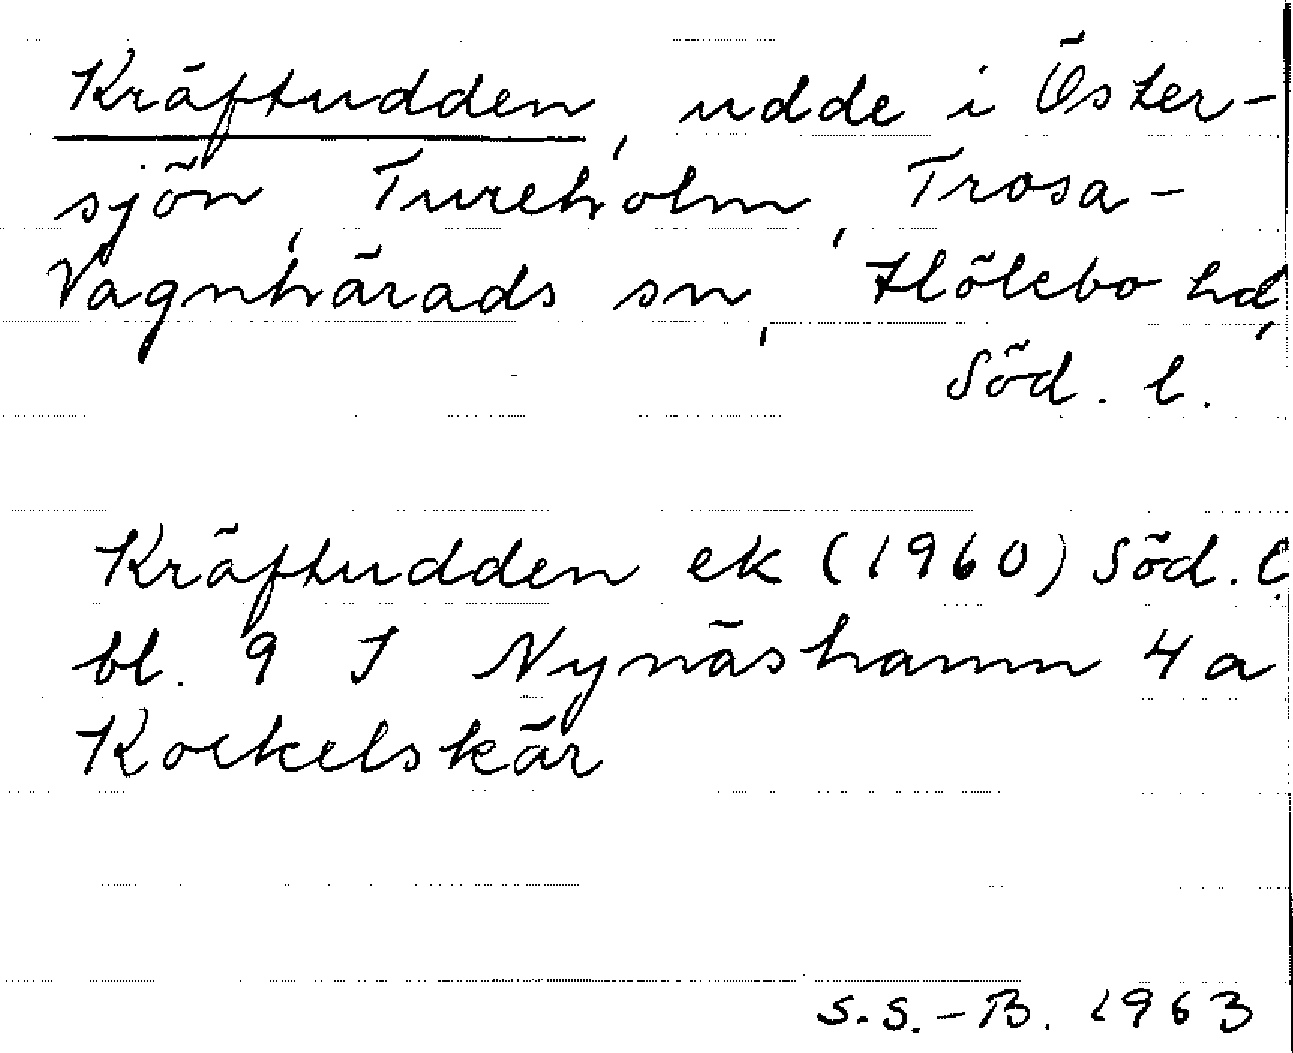 Kräftudden, udde i Öster-
sjön, Tureholm, Trosa-
Vagnhärads sn, Hölebo hd,
Söd. l.
Kräftudden ek (1960) Söd. l.
bl. 9 I Nynäshamn 4a
Kockelskär
S.S.-B. 1963